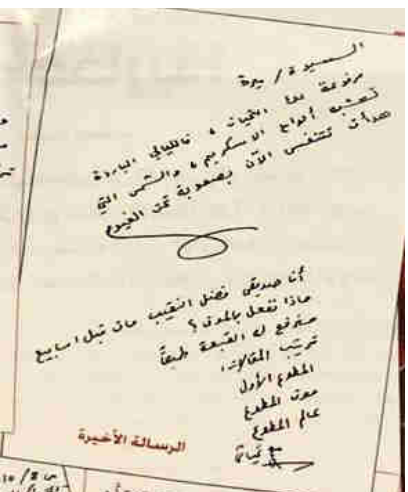 السيدة / ميرة
مرفوعة لك التحيات، فالليالي الباردة
تستحب ألواح الايسكريم، والشمس التي
هدأت تتنفس الآن بصعوبة تحت الغيوم
أنا صديقي فضل النقيب مات قبل اسابيع
ماذا نفعل بالموت؟
سنرفع له القبعة طبعاً
ترتيب المقالات:
المطوع الأول
موت المطوع
عالم المطوع
مع تحياتي
الرسالة الأخيرة